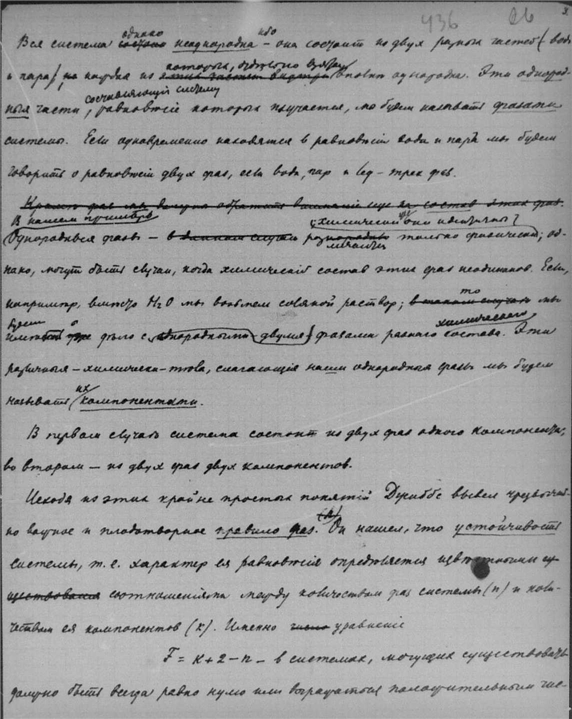 436 26
Вся система однако неоднородна — ибо она состоитъ из двух разных частей (вода
и пара), каждая из которых, отдельно взятая, вполне однородна. Эти однород-
ныя части, составляющiя систему, равновѣсiе которых изучается, мы будем называть фазами
системы. Если одновременно находятся в равновѣсiи вода и паръ мы будем
говорить о равновѣсiи двух фаз, если вода, пар и лед — трех фаз.
Кромѣ фаз мы должны обратить вниманiе еще на состав этих фаз.
В нашем примѣрѣ
Однородныя фазы — различны только физически; (химически они идентичны) од-
нако, могут быть случаи, когда химическiй состав этих фаз неодинаков. Если,
например, вмѣсто H₂O мы возьмем соляной раствор; то мы
будем имѣть дѣло с двумя однородными фазами разнаго химическаго состава. Эти
различныя — химически — тѣла, слагающiя наши однородныя фазы мы будем
называть их компонентами.
В первом случаѣ система состоит из двух фаз одного компонента,
во втором — из двух фаз двух компонентов.
Исходя из этих крайне простых понятiй Джиббс вывел чрезвычай-
но важное и плодотворное правило фаз. Он нашел, что устойчивость
системы, т. е. характер ея равновѣсiя опредѣляется
соотношенiями между количеством фаз системы (n) и коли-
чеством ея компонентов (k). Именно уравненiе
F = k + 2 − n — в системах, могущих существовать
должно быть всегда равно нулю или выражаться положительным чис-